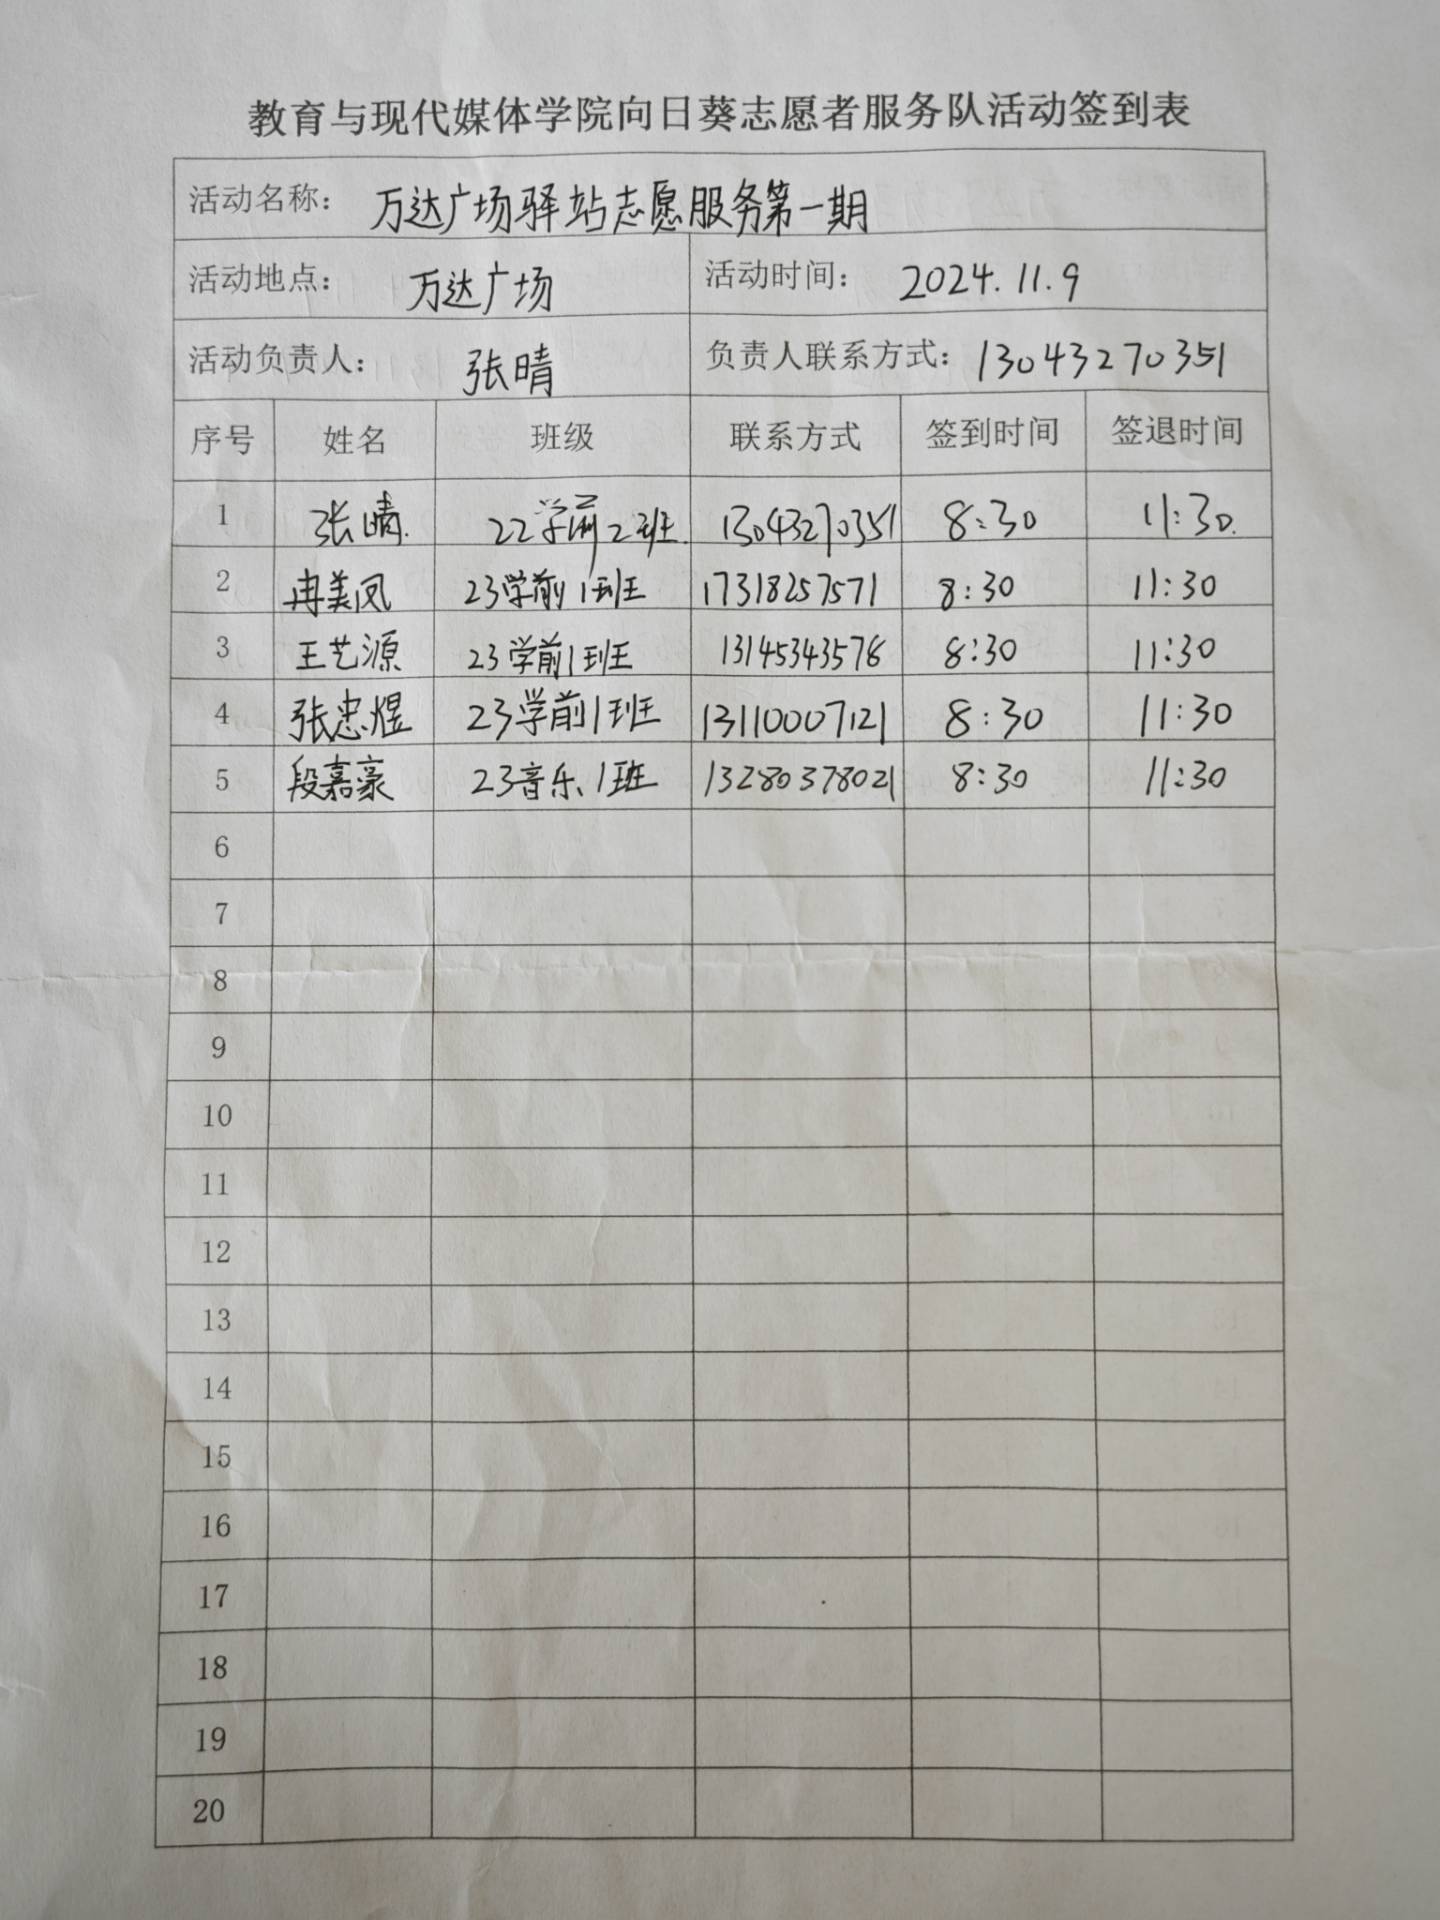 教育与现代媒体学院向日葵志愿者服务队活动签到表
活动名称： 万达广场驿站志愿服务第一期
活动地点： 万达广场 活动时间： 2024.11.9
活动负责人： 张晴 负责人联系方式：13043270351
序号 姓名 班级 联系方式 签到时间 签退时间
1 张晴. 22学前2班. 13043270351 8:30 11:30.
2 冉美凤 23学前1班 17318257571 8:30 11:30
3 王艺源 23学前1班 13145343576 8:30 11:30
4 张忠煜 23学前1班 13110007121 8:30 11:30
5 段嘉豪 23音乐1班 13280378021 8:30 11:30
6
7
8
9
10
11
12
13
14
15
16
17
18
19
20